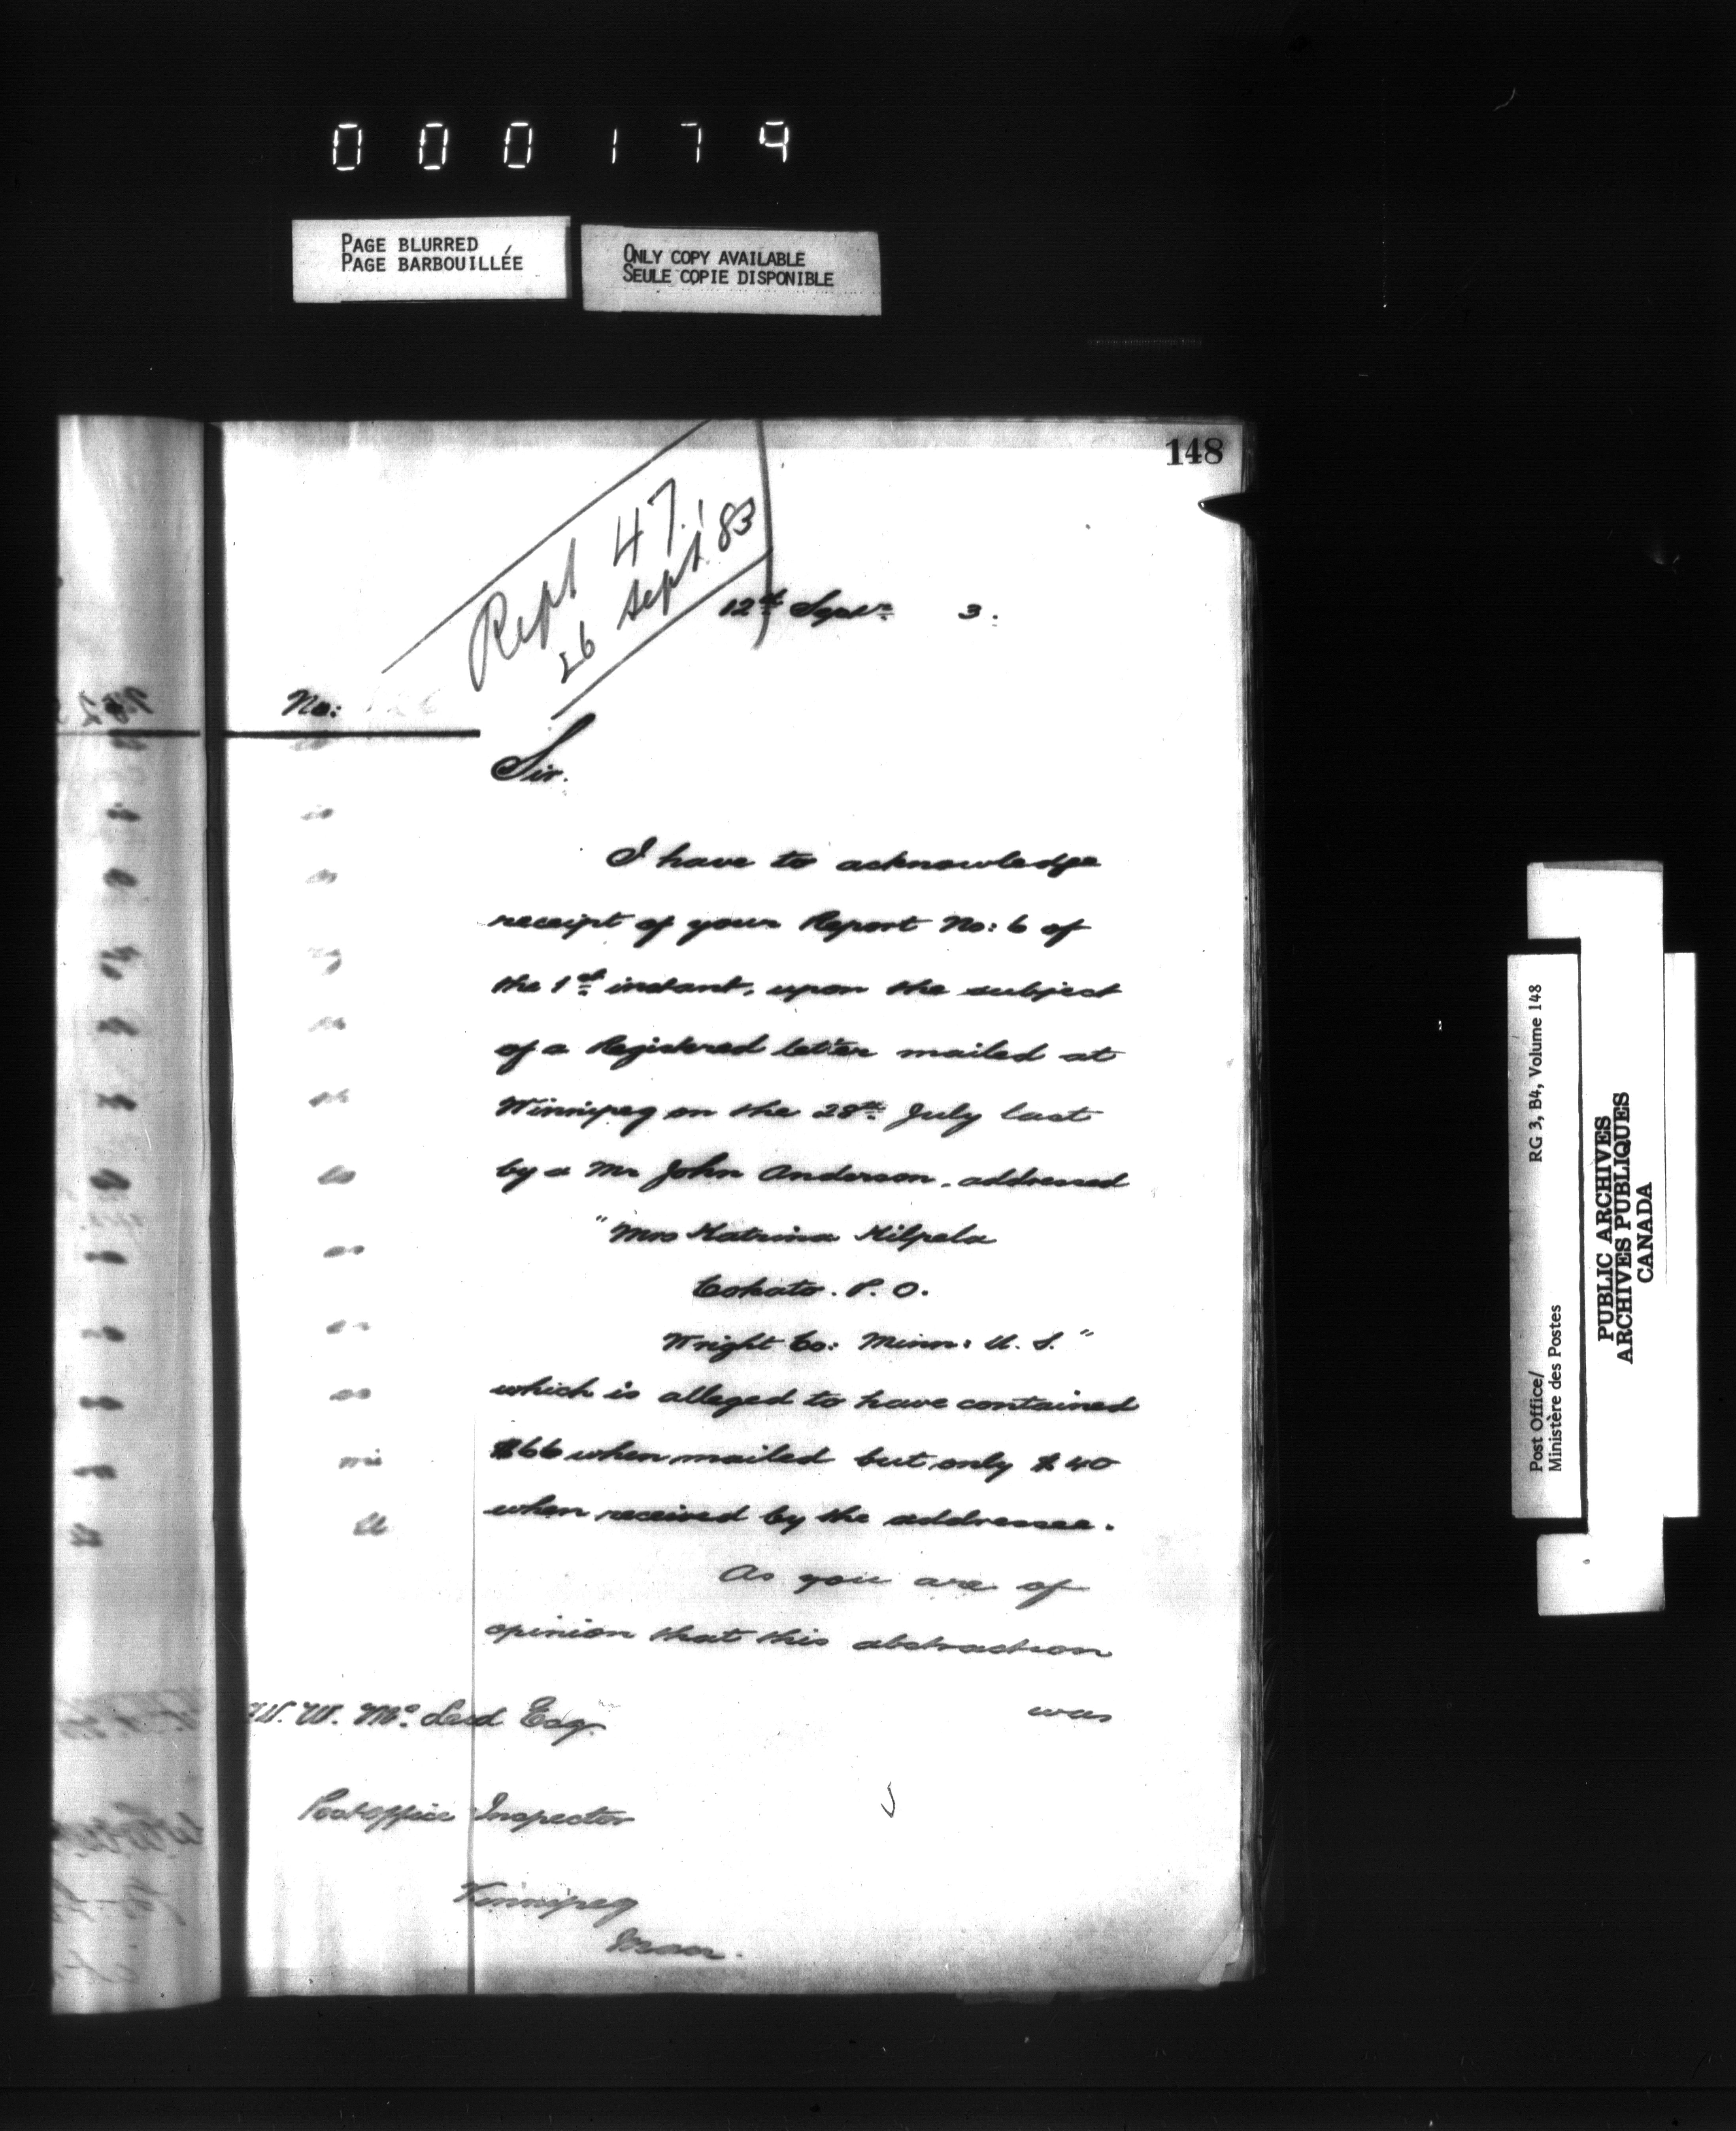 000179
PAGE BLURRED
PAGE BARBOUILLÉE
ONLY COPY AVAILABLE
SEULE COPIE DISPONIBLE
148
Rept 47.
26 Sept. '83
12th Septr 3.
No:
Sir.
I have to acknowledge
receipt of your Report No: 6 of
the 1st instant, upon the subject
of a Registered letter mailed at
Winnipeg on the 28th July last
by a Mr John Anderson, addressed
"Mrs Katrina Kilpela
Cokato. P. O.
Wright Co: Minn: U. S."
which is alleged to have contained
$66 when mailed but only $40
when received by the addressee.
As you are of
opinion that this abstraction
was
W. W. Mc Leod Esq.
Post Office Inspector
Winnipeg
Man.
Post Office/
Ministère des Postes
RG 3, B4, Volume 148
PUBLIC ARCHIVES
ARCHIVES PUBLIQUES
CANADA